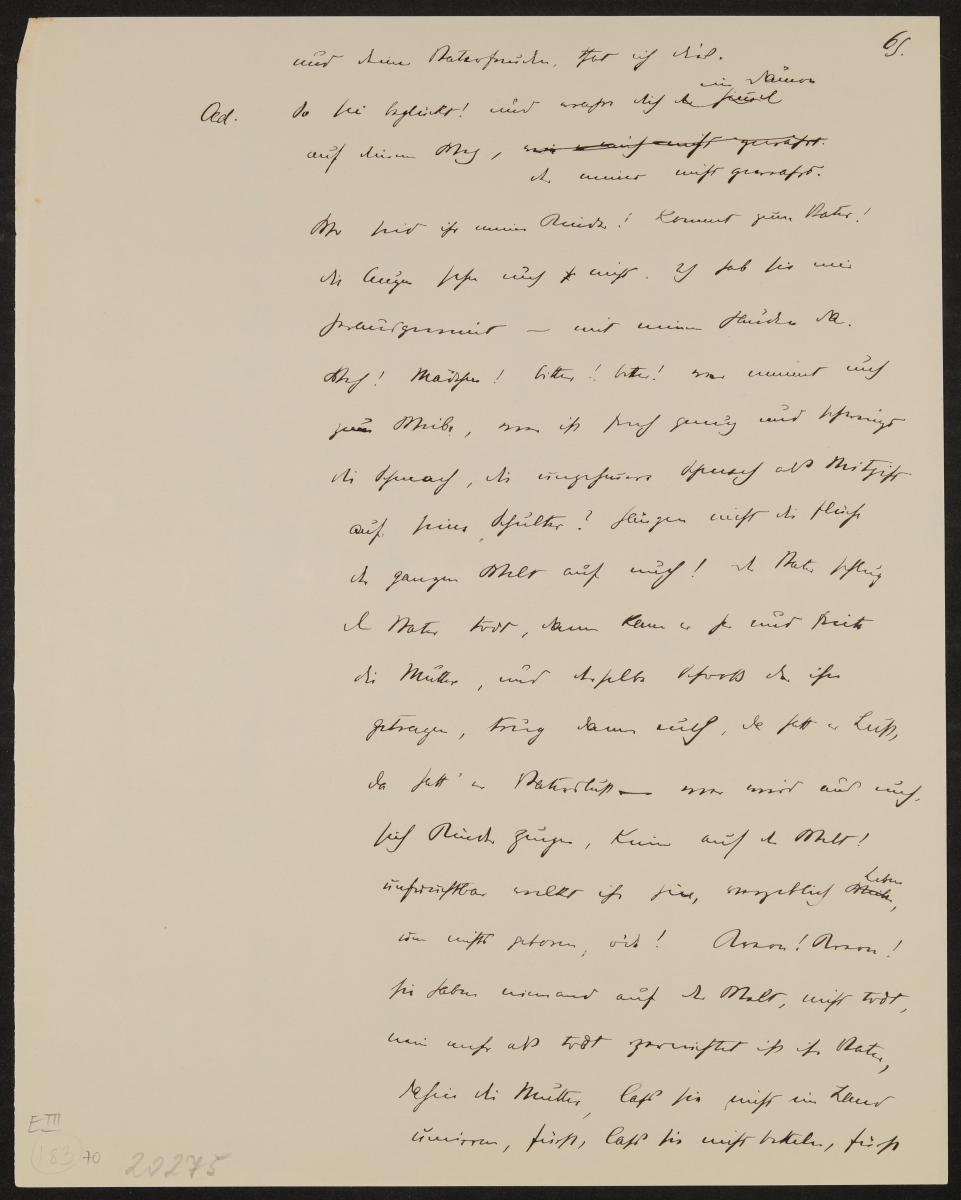 65.
und deine Vaterfreuden, that ich dies.
ein Dämon
Oed. So sei beglückt! und wahre dich der Himmel
auf diesem Weg, wie er mich nicht gewahrt.
der meiner nicht gewahrt.
Wo seid ihr meine Kinder! Kommt zum Vater!
die Augen sehn euch nicht. Ich hab sie mir
herausgeweint — mit meinen Händen da.
Ach! Mädchen! bitter! bitter! wer nimmt euch
zum Weibe, wer ist frech genug und schwingt
die Schmach, die ungeheure Schmach als Mitgift
auf seine Schulter? Hängen nicht die Flüche
der ganzen Welt auf euch! der Vater schlug
den Vater todt, dann kam er her und freite
die Mutter, und derselbe Schooß der ihn
getragen, trug dann euch, da hatt er Lust,
da hatt' er Vaterlust — wer wird aus euch
sich Kinder zeugen, Keiner auf der Welt!
Leben
unfruchtbar welkt ihr hin, vergeblich
um nichts geboren, öde! Kreon! Kreon!
sie haben niemand auf der Welt, nicht todt,
nein mehr als todt zernichtet ist ihr Vater,
dahin die Mutter, laß sie nicht im Land
umirren, Fürst, laß sie nicht betteln, Fürst
E III
183 70 20275